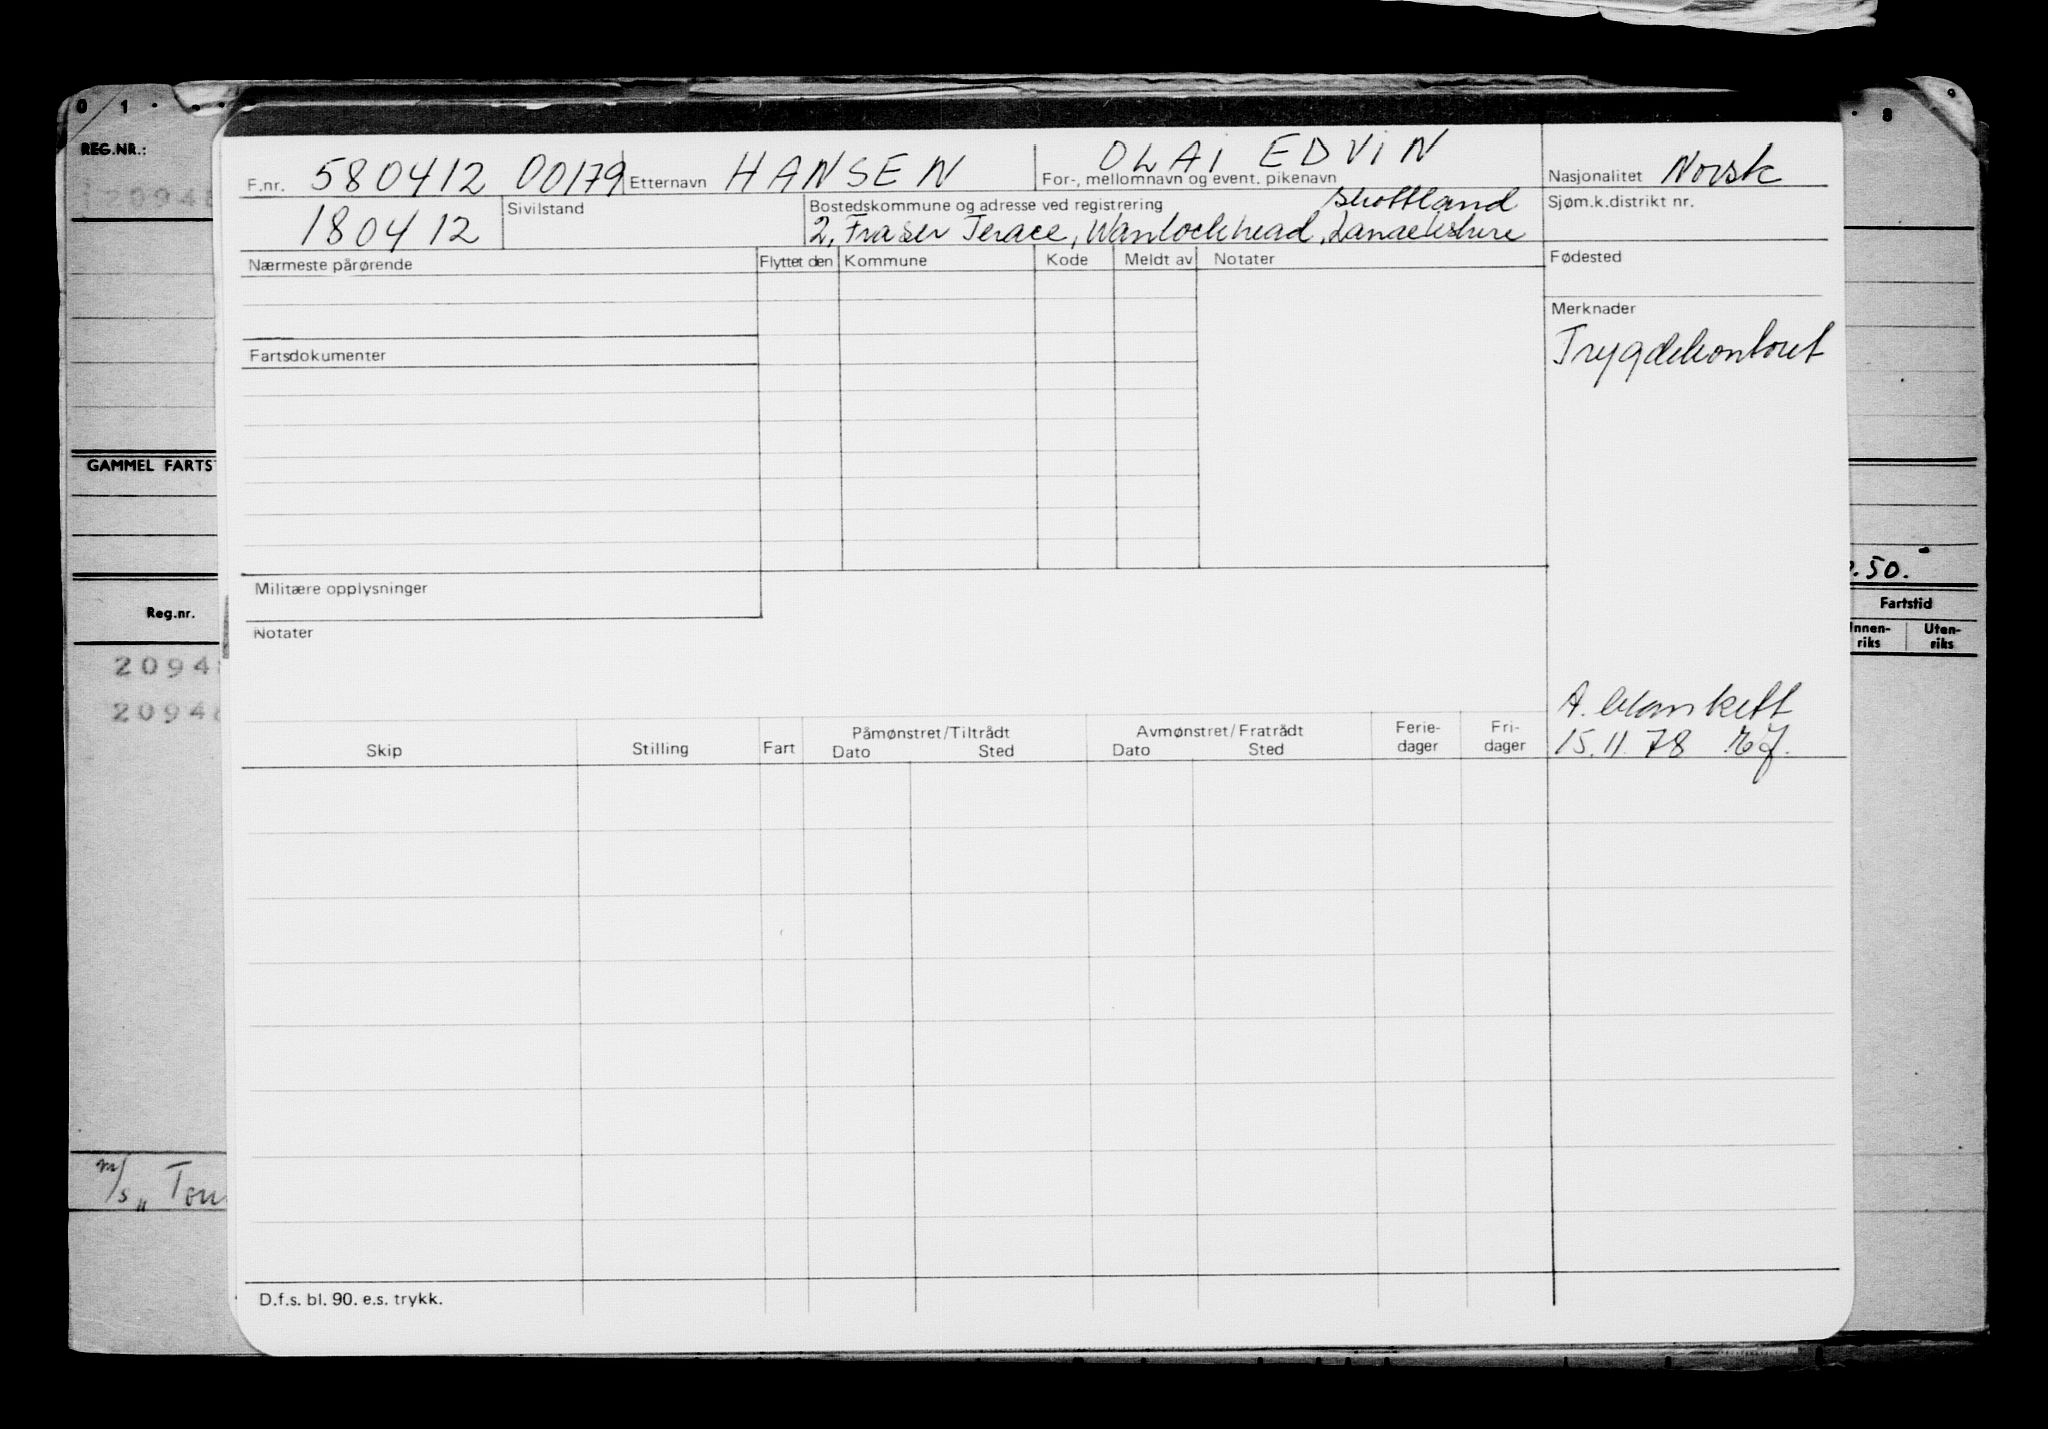 0 1 8 9
REG.NR.:
20948
F.nr. 580412 00179 Etternavn HANSEN OLAI EDVIN For-, mellomnavn og event. pikenavn Nasjonalitet Norsk
180412 Sivilstand Bostedskommune og adresse ved registrering Skottland Sjøm.k.distrikt nr.
2, Fraser Terace, Wanlockhead,
Nærmeste pårørende Flyttet den Kommune Kode Meldt av Notater Fødested
Merknader
Trygdekontoret
Fartsdokumenter
GAMMEL FARTS
.50.
Militære opplysninger
Reg.nr. Fartstid
Notater Innen- Uten-
riks riks
2094
2094
A. blankett
15.11.78
Skip Stilling Fart Påmønstret/Tiltrådt Avmønstret/Fratrådt Ferie- Fri-
Dato Sted Dato Sted dager dager
m/s „Tou
D.f.s. bl. 90. e.s. trykk.